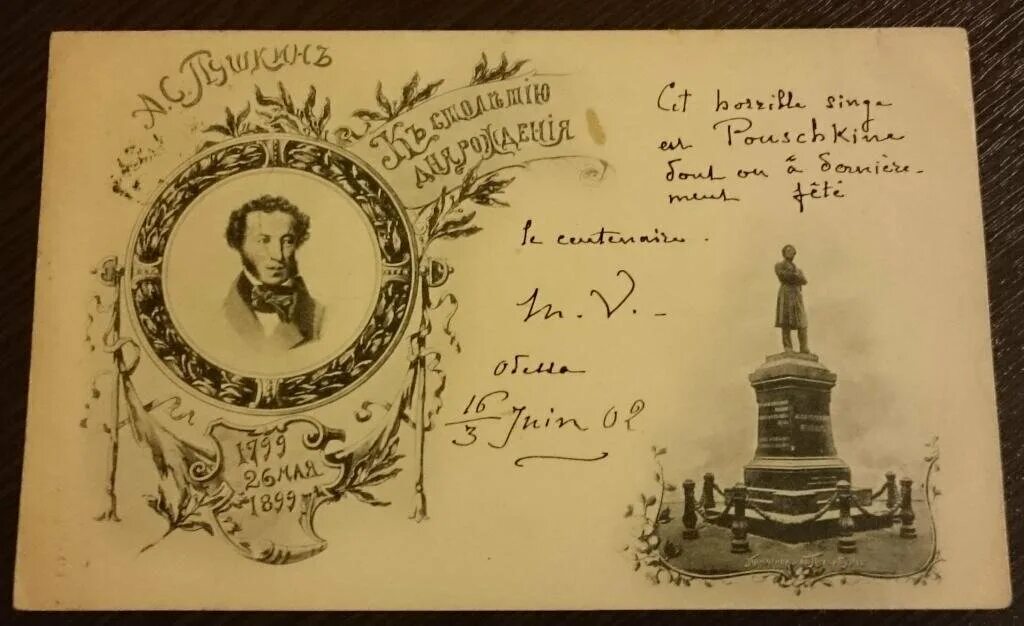 А.С. Пушкинъ
Къ столѣтію
дня рожденія
1799
26 мая
1899
Cet horrible singe
est Pouschkine
dont on a dernière-
ment fêté
le centenaire.
M. V. -
Odessa
16/3 Juin 02